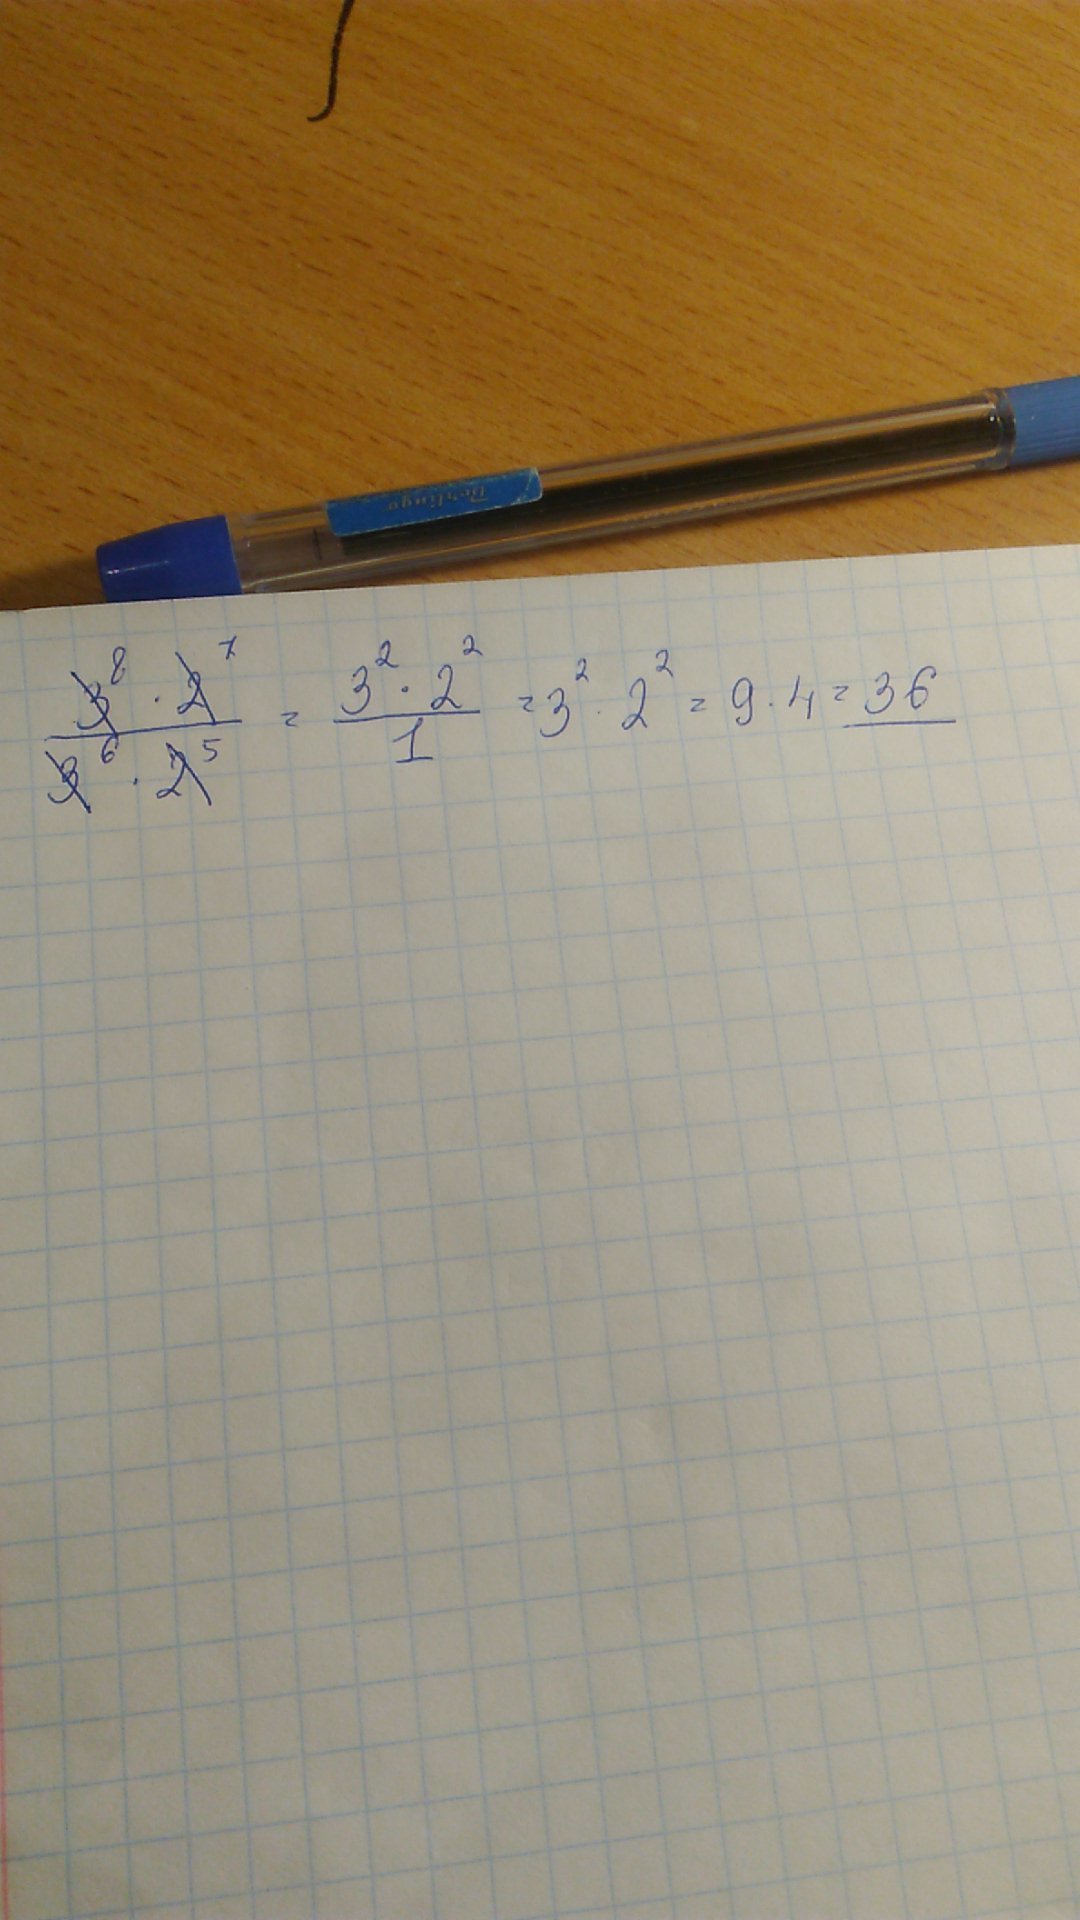 Berlingo
3⁸ · 2⁷ / 3⁶ · 2⁵ = 3² · 2² / 1 = 3² · 2² = 9 · 4 = 36